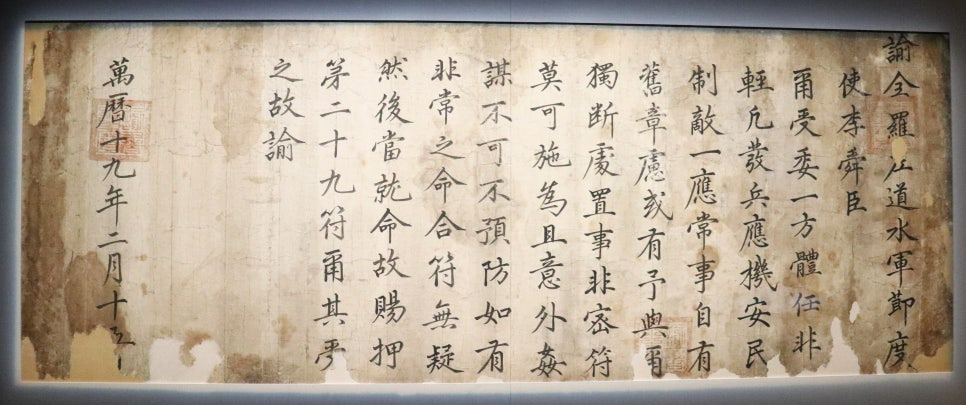 諭全羅左道水軍節度
使李舜臣
爾受委一方體任非
輕凡發兵應機安民
制敵一應常事自有
舊章慮或有予與爾
獨斷處置事非密符
莫可施為且意外姦
謀不可不預防如有
非常之命合符無疑
然後當就命故賜押
第二十九符爾其受
之故諭
萬曆十九年二月十五